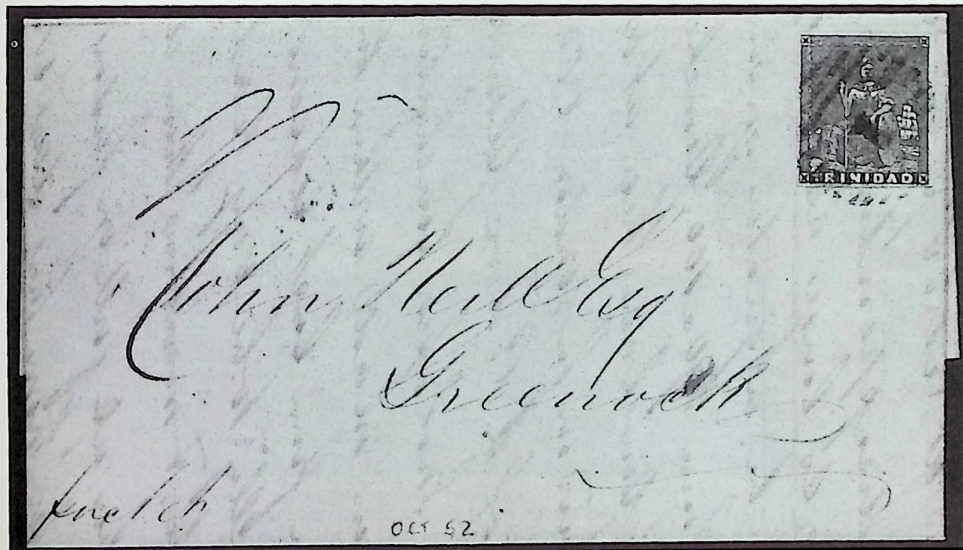 TRINIDAD
John Neill Esq
Greenock
OCT 52